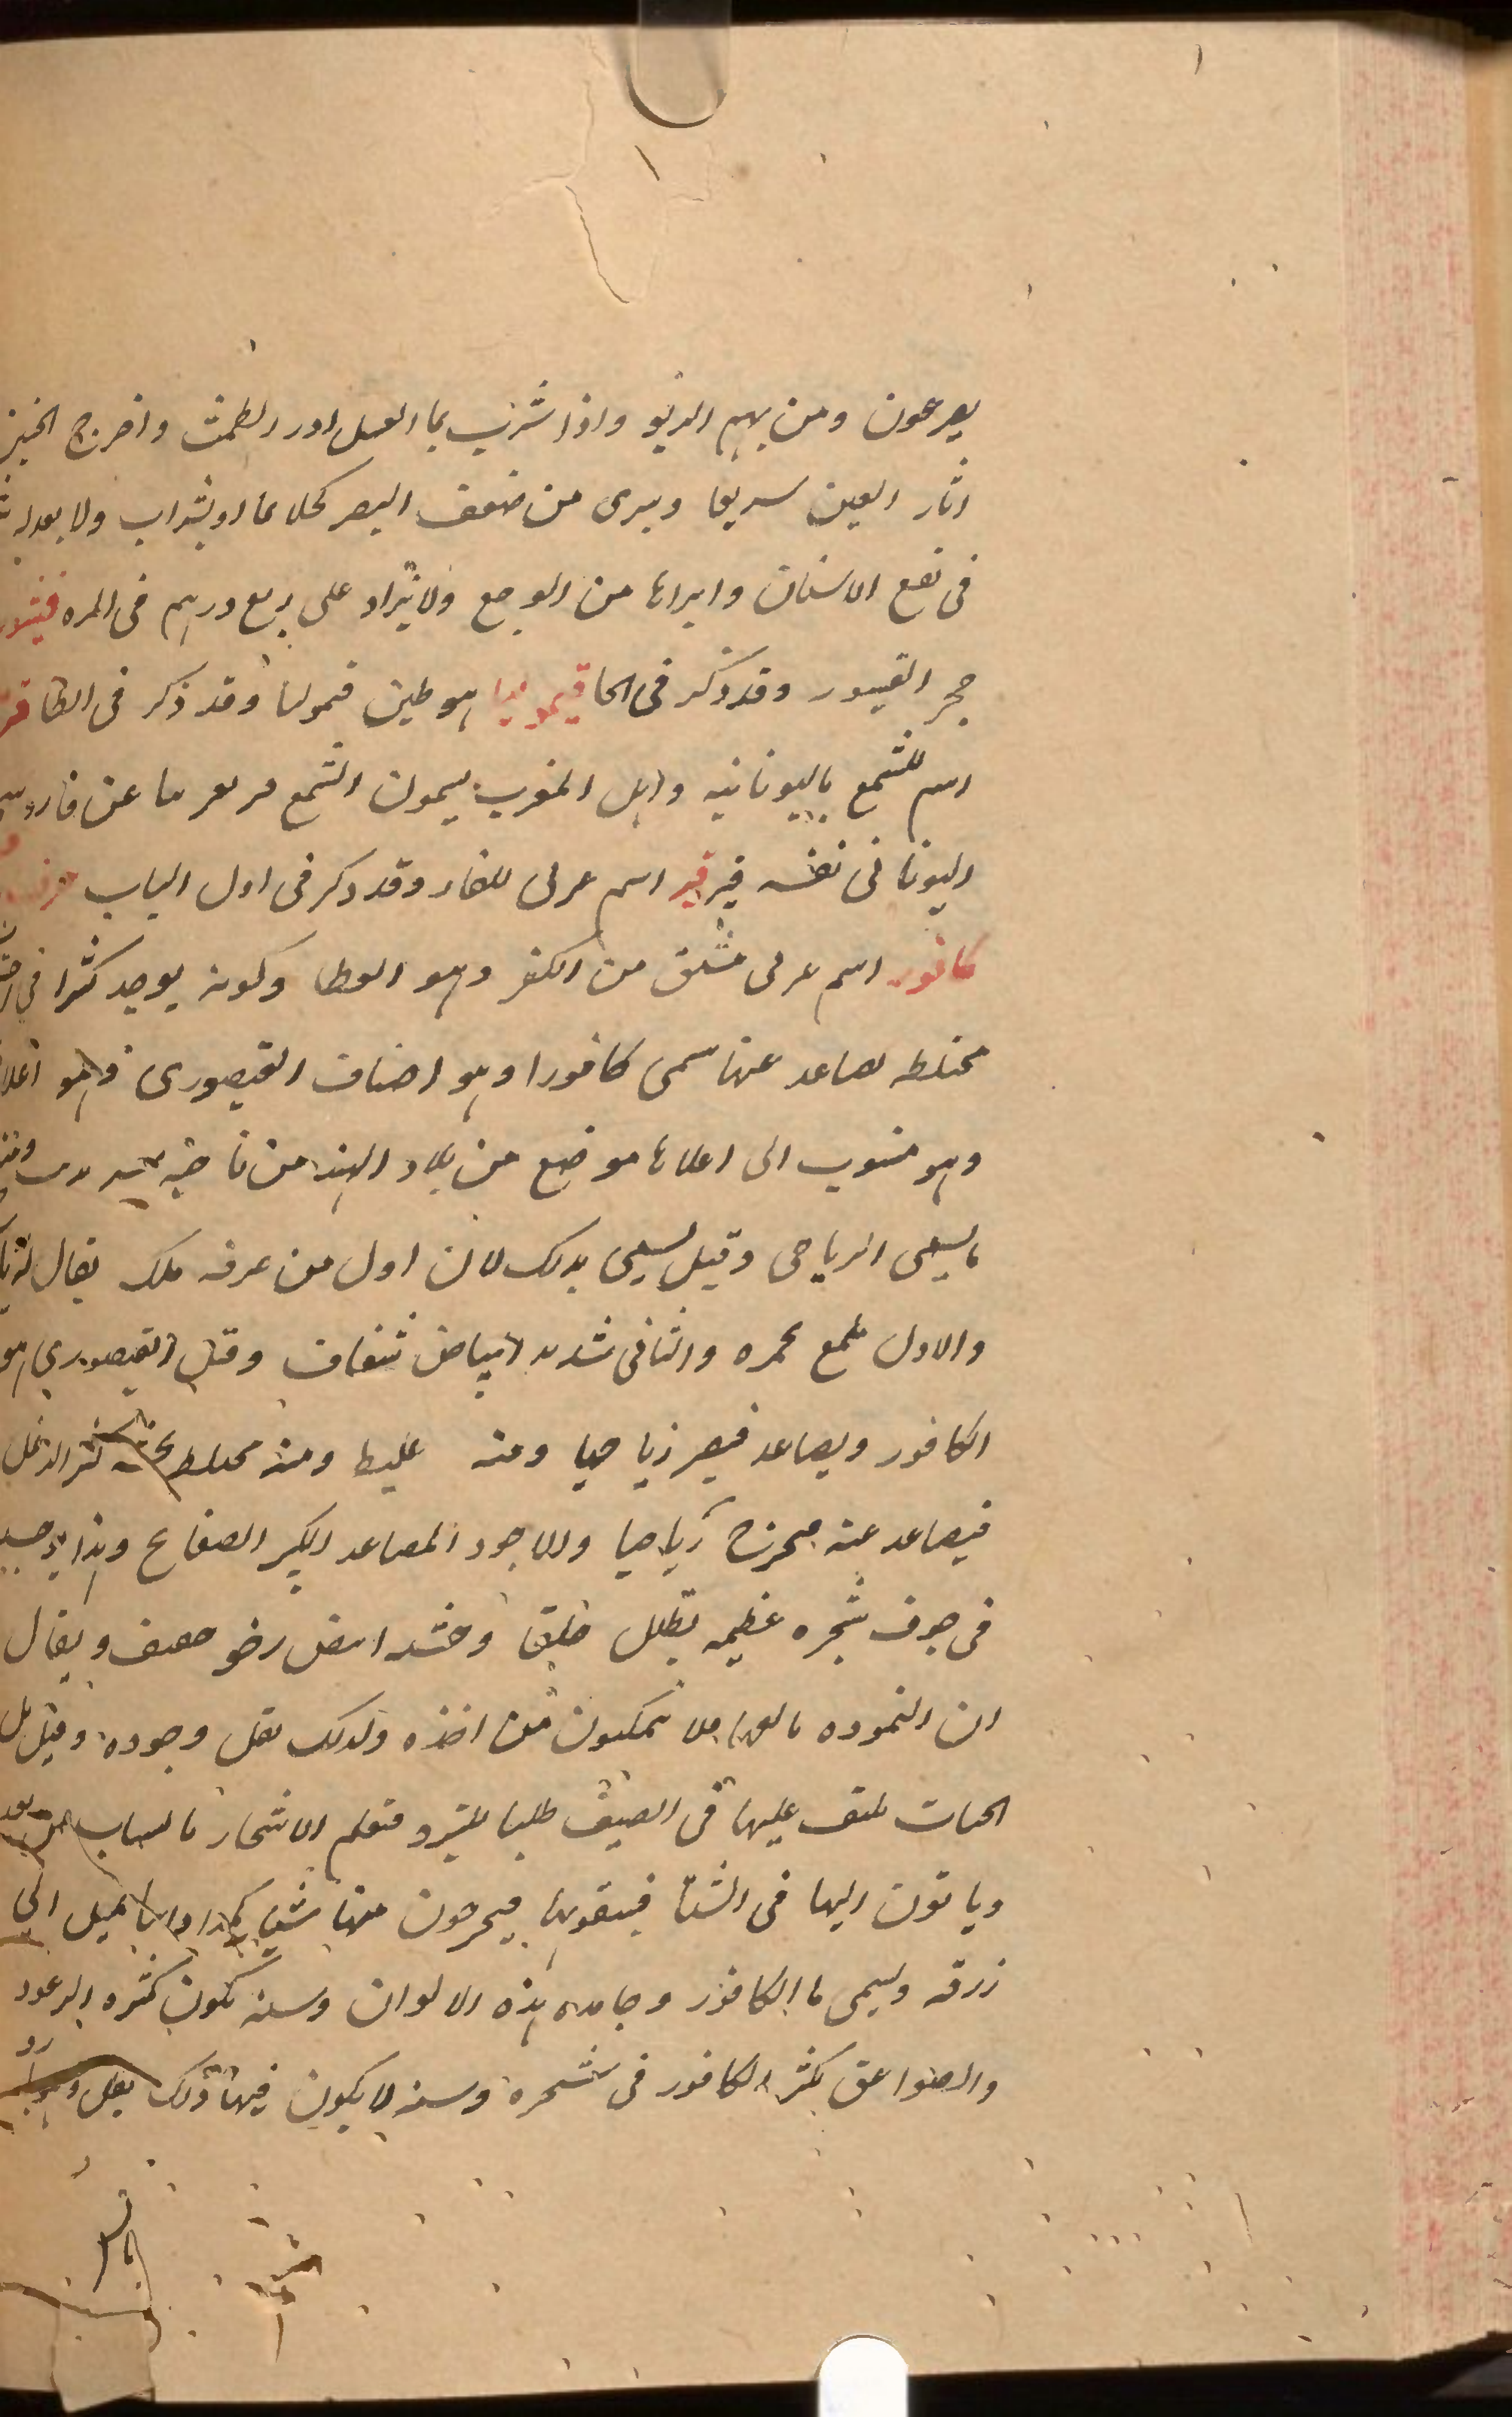 يصرعون ومن بهم الربو واذا شرب بما العسل ادر الطمث واخرج الجنين
اثار العين سريعا ويبرى من ضعف البصر كحلا بما او بشراب ولا يعدله
فى نفع الاسنان وابراها من الوجع ولا يزاد على ربع درهم فى المره فيشور
حجر القيسور وقد ذكر فى الحا قيموليا هو طين قيموليا وقد ذكر فى الطا
اسم للشمع باليونانيه واهل المغرب يسمون الشمع
اليونانى نفسه قير قير اسم عربى للقار وقد ذكر فى اول الباب حرف
كافور اسم عربى مشتق من الكفر وهو الغطا وكونه يوجد كثيرا فى
مختلطه تصاعد عنها سمى كافورا وهو اصناف القيصورى وهو اعلا
وهو منسوب الى اعلاها موضع من بلاد الهند من ناحيه
يسمى الرياحى وقيل يسمى بذلك لان اول من عرفه ملك يقال له
والاول ملمع بحمره والثانى شديد البياض شفاف وقيل القيصورى هو
الكافور ويصاعد فيصير رياحيا ومنه غليظ ومنه مختلط
فيصاعد عنه فيخرج رياحيا والاجود المصاعد الكبير الصفايح وهذا يوجد
فى جوف شجره عظيمه تظلل خلقا وخشبه ابيض رخو خفيف ويقال
ان النموره تالفها فلا يتمكنون من اخذه ولذلك يقل وجوده وقيل بل
الحيات تلتف عليها فى الصيف طلبا للتبرد فتعلم الاشجار بالنشاب من بعد
وياتون اليها فى الشتا فينقبونها فيخرجون منها شيا يميل الى
زرقه ويسمى ما الكافور وجامده بهذه الالوان وسنه تكون كثيره الرعود
والصواعق يكثر الكافور فى شجره وسنه لا يكون فيها ذلك يقل